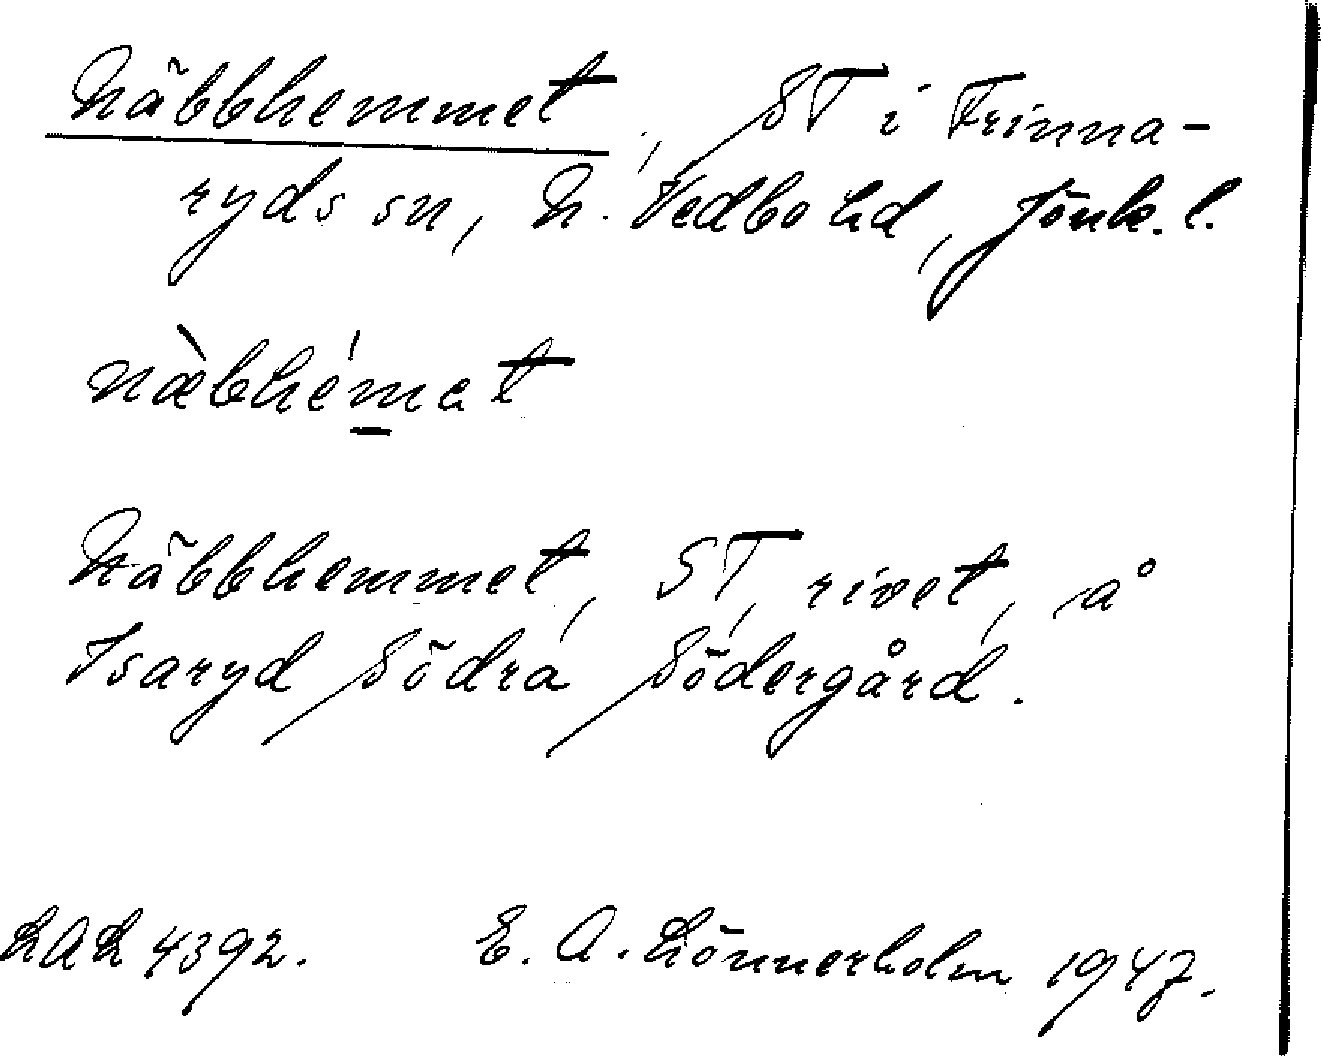 Näbbhemmet, ST i Frinna-
ryds sn, N. Vedbo hd, Jönk. l.
næ̀bhémet
Näbbhemmet, ST, rivet, å
Isaryd Södra Södergård.
LAL 4392. E. A. Lönnerholm 1947.